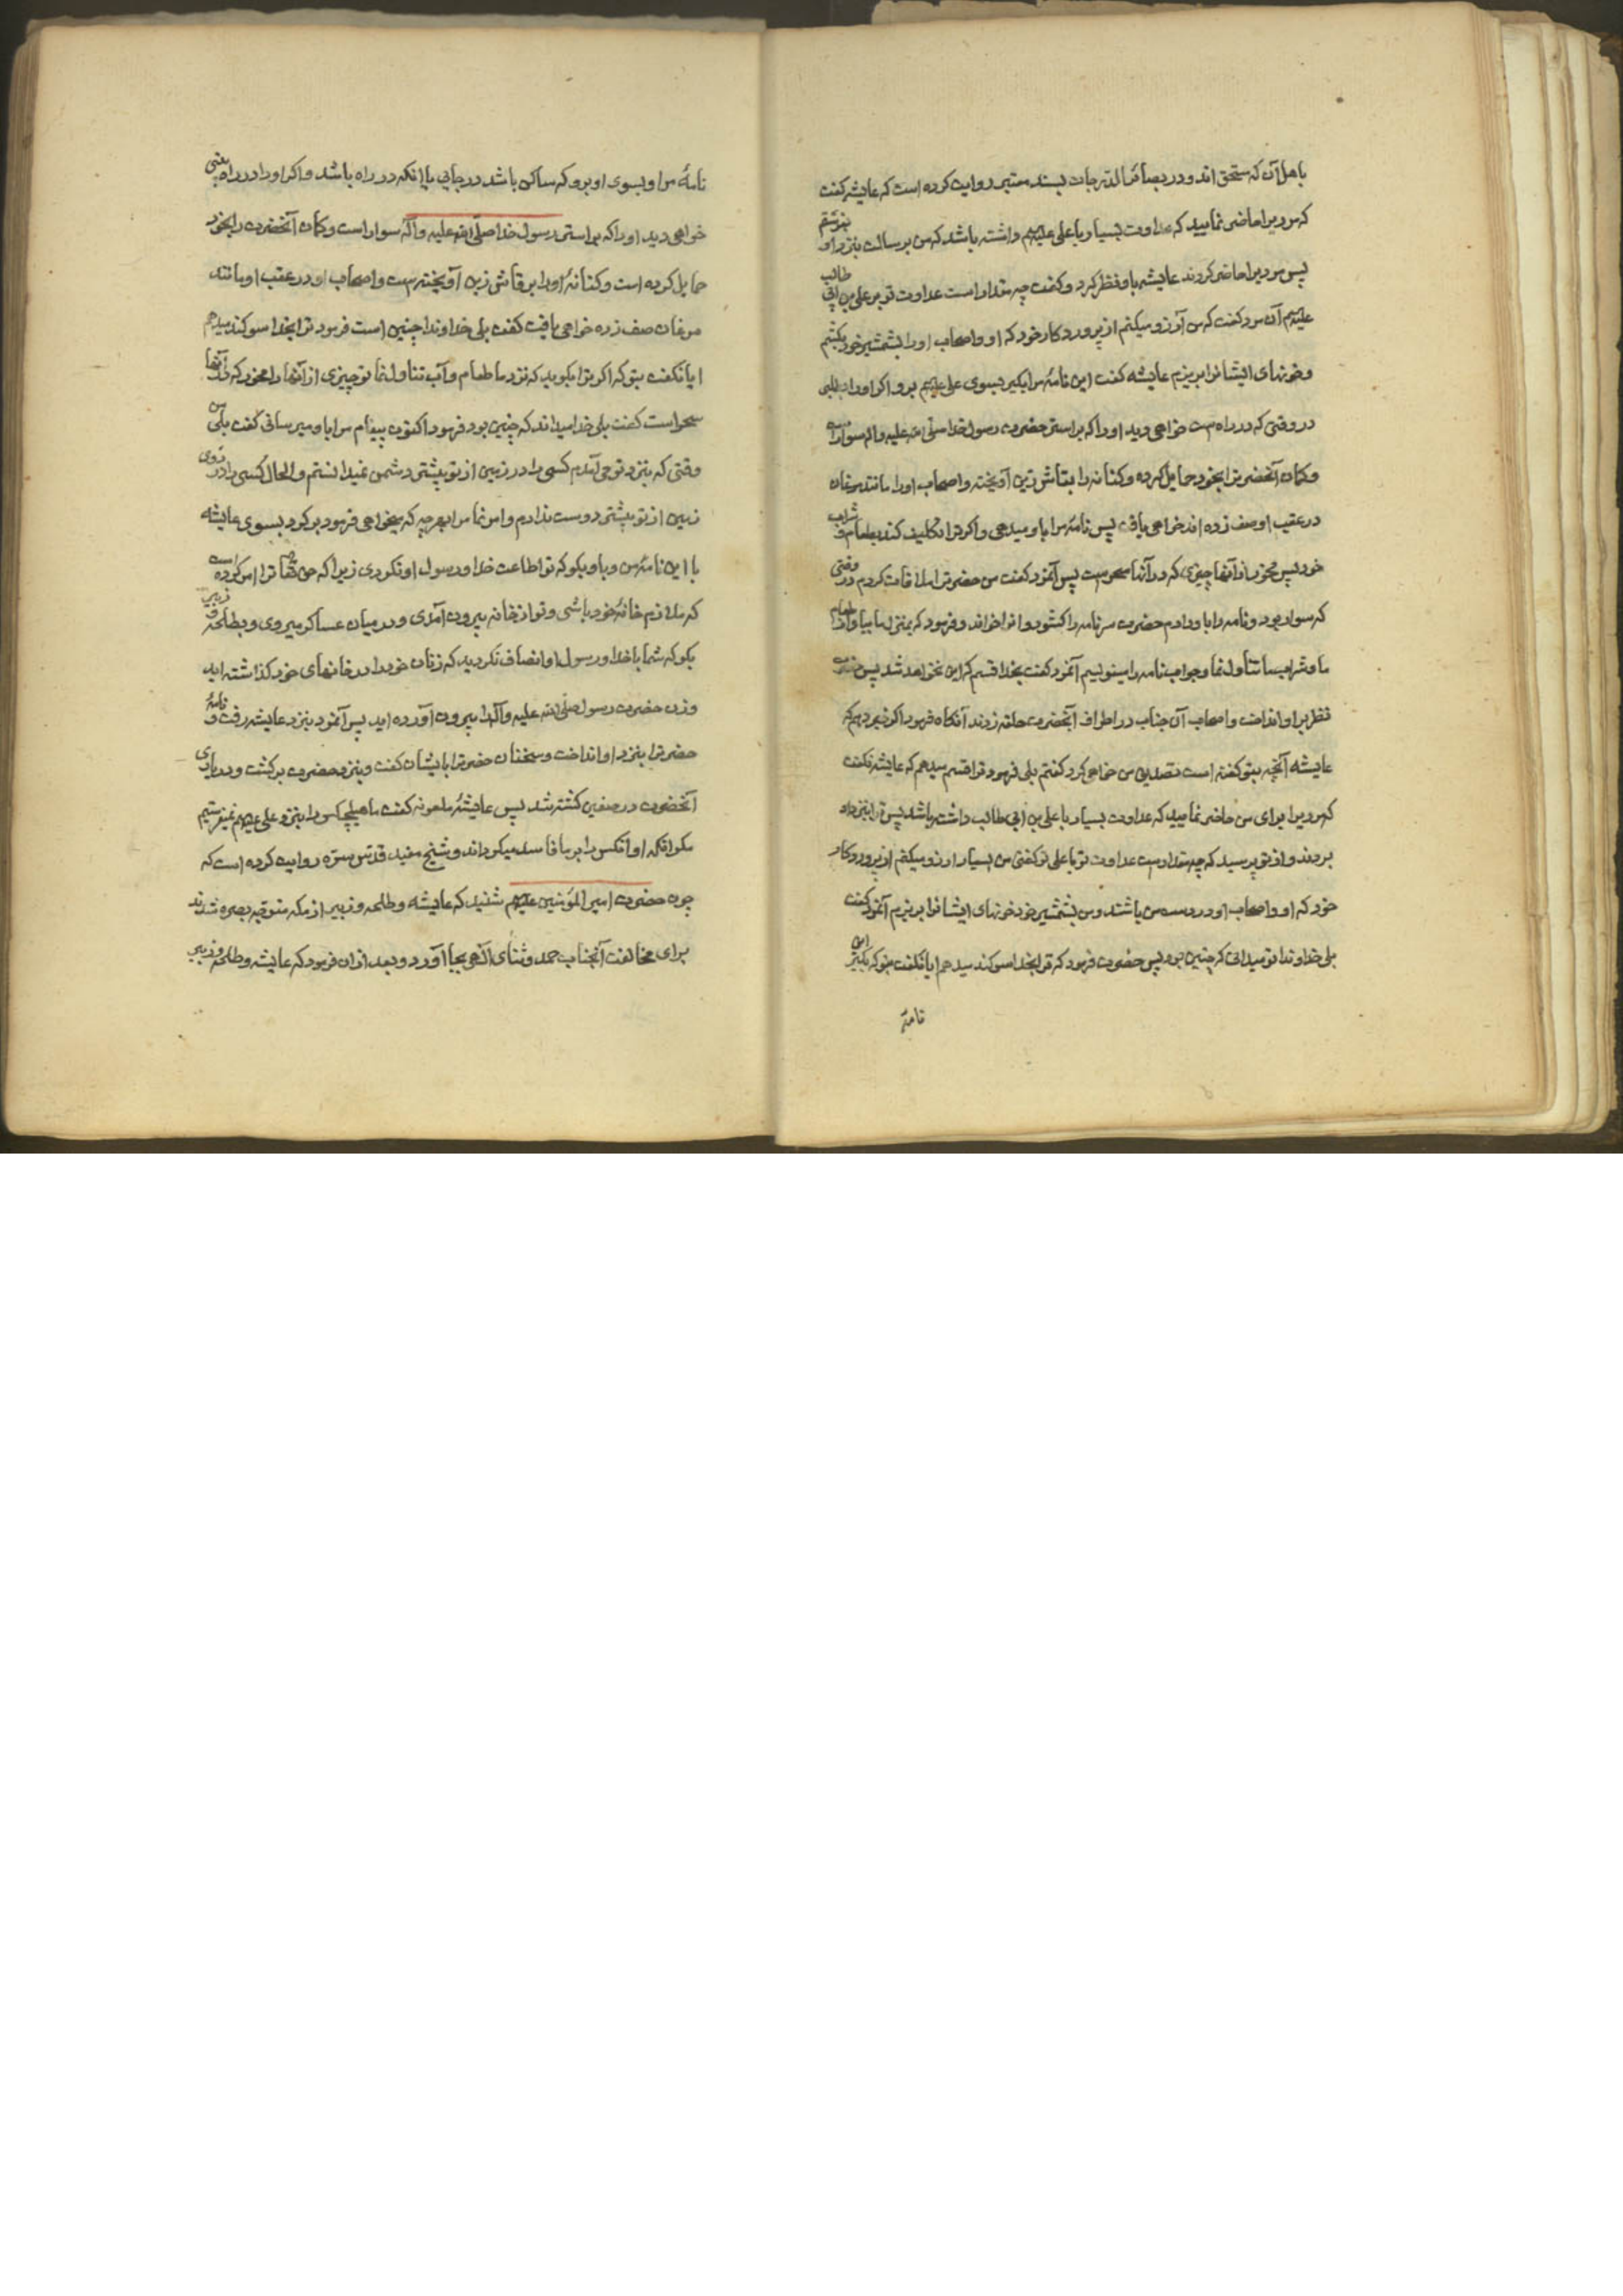 باهل آن که مستحق اند و در بصائر الدرجات بسند معتبر روایت کرده است که عایشه گفت
که مردیرا حاضر نمایید که عداوت بسیار با علی علیهم داشته باشد که من برسالت بنزد او بفرستم
پس مردیرا حاضر کردند عایشه باو نظر کرد و گفت چه مقدار است عداوت تو بر علی بن ابی طالب
علیهم آن مرد گفت که من آرزو میکنم از پروردگار خود که او و اصحاب او را بشمشیر خود بکشم
و خونهای ایشانرا بریزم عایشه گفت این نامهٔ مرا بگیر بسوی علی علیهم برو اگر او را
در وقتی که در راه است خواهی دید او را که بر استر حضرت رسول خدا صلی الله علیه واله سوار است
و کمان آنحضرترا بخود حمایل کرده و کنانه را بقاش زین آویخته و اصحاب او را مانند مرغان
در عقب او صف زده اند خواهی یافت پس نامهٔ مرا باو میدهی و اگر ترا تکلیف کند بطعام و شراب
خود پس مخور از آنها چیزی که در آنها سحر است پس آنمرد گفت من حضرترا ملاقات کردم در وقتی
که سوار بود و نامه را باو دادم حضرت سر نامه را کشود و انرا خواند و فرمود که بمنزل ما بیا و از طعام
ما و شراب ما تناول نما و جواب نامه را بنویسیم آنمرد گفت بخدا قسم که این نخواهد شد پس حضرت
نظر بر او انداخت و اصحاب آن جناب در اطراف آنحضرت حلقه زدند آنگاه فرمود اگر خبر دهم که
عایشه آنچه بتو گفته است تصدیق من خواهی کرد گفتم بلی فرمود ترا قسم میدهم که عایشه نگفت
که مردیرا برای من حاضر نمایید که عداوت بسیار با علی بن ابی طالب داشته باشد پس ترا بنزد او
بردند و از تو پرسید که چه مقدار است عداوت تو با علی تو گفتی من بسیار ارزو میکنم از پروردگار
خود که او و اصحاب او در دست من باشند و من بشمشیر خود خونهای ایشانرا بریزم آنمرد گفت
بلی خداوندا تو میدانی که چنین بود پس حضرت فرمود که ترا بخدا سوگند میدهم ایا نگفت بتو که بگیر این
نامهٔ
نامهٔ مرا و بسوی او برو که ساکن باشد در جایی یا انکه در راه باشد و اگر او را در راه یعنی
خواهی دید او را که بر استر رسول خدا صلی الله علیه وآله سوار است و کمان آنحضرت را بخود
حمایل کرده است و کنانهٔ او را بر قاش زین آویخته است و اصحاب او در عقب او مانند
مرغان صف زده خواهی یافت گفت بلی خداوندا چنین است فرمود ترا بخدا سوگند میدهم
ایا نگفت بتو که اگر ترا بگوید که نزد ما طعام و آب تناول نما تو چیزی از آنها را مخور که در آنها
سحر است گفت بلی خدا میداند که چنین بود فرمود اکنون پیغام مرا باو میرسانی گفت بلی من
وقتی که بنزد تو می آمدم کسی را در زمین از تو بیشتر دشمن نمیدانستم والحال کسی را در روی
زمین از تو بیشتر دوست ندارم و امر نما مرا بهر چه که میخواهی فرمود برگرد بسوی عایشه
با این نامهٔ من و باو بگو که تو اطاعت خدا و رسول او نکردی زیرا که حق تعالی ترا امر کرده است
که ملازم خانهٔ خود باشی و تو از خانه بیرون آمدی و در میان عساکر میروی و بطلحه و زبیر
بگو که شما با خدا و رسول او انصاف نکردید که زنان خود را در خانهای خود گذاشته اید
و زن حضرت رسول صلی الله علیه وآله را بیرون آورده اید پس آنمرد بنزد عایشه رفت و نامهٔ
حضرترا بنزد او انداخت و سخنان حضرترا بایشان گفت و بنزد حضرت برگشت و در یاری
آنحضرت در صفین کشته شد پس عایشهٔ ملعونه گفت ما هیچکس را بنزد علی علیهم نمیفرستیم
مگر انکه او انکس را بر ما فاسد میگرداند و شیخ مفید قدس سره روایت کرده است که
چون حضرت امیر المؤمنین علیهم شنید که عایشه و طلحه و زبیر از مکه متوجه بصره شدند
برای مخالفت آنجناب حمد و ثنای الهی بجا آورد و بعد از ان فرمود که عایشه و طلحه و زبیر